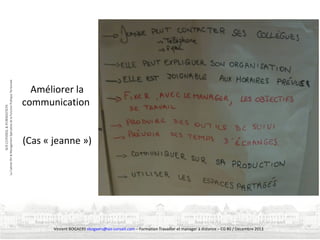 Améliorer la
communication
(Cas « jeanne »)
→ JEANNE PEUT CONTACTER SES COLLÈGUES
→ Téléphone
→ Mail
→ ELLE PEUT EXPLIQUER SON ORGANISATION
→ ELLE EST JOIGNABLE AUX HORAIRES PRÉVUES
→ FIXER, AVEC LE MANAGER, LES OBJECTIFS
DE TRAVAIL
→ PRODUIRE DES OUTILS DE SUIVI
→ PRÉVOIR DES TEMPS D'ÉCHANGES
→ COMMUNIQUER SUR SA PRODUCTION
→ UTILISER LES ESPACES PARTAGÉS
Vincent BOGAERS vbogaers@soi-conseil.com – Formation Travailler et manager à distance – CG 80 / Décembre 2013